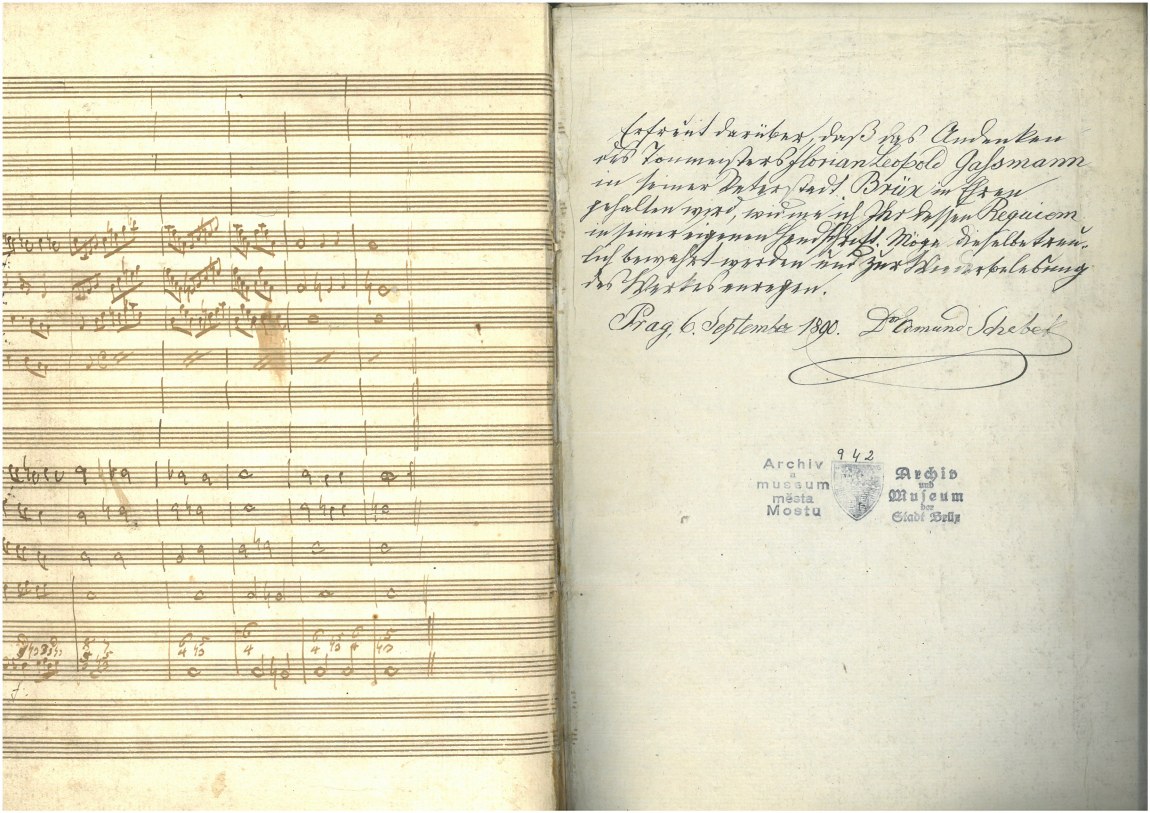 Erfreut darüber, daß das Andenken
des Tonmeisters Florian Leopold Gassmann
in seiner Vaterstadt Brüx in Ehren
gehalten wird, widme ich Ihr dessen Requiem
in seiner eigenen Handschrift. Möge dieselbe treu-
lich bewahrt werden und zur Wiederbelebung
des Werkes anregen.
Prag, 6. September 1890. Dr Edmund Schebek
942
Archiv
a
museum
města
Mostu
Archiv
und
Museum
der
Stadt Brüx